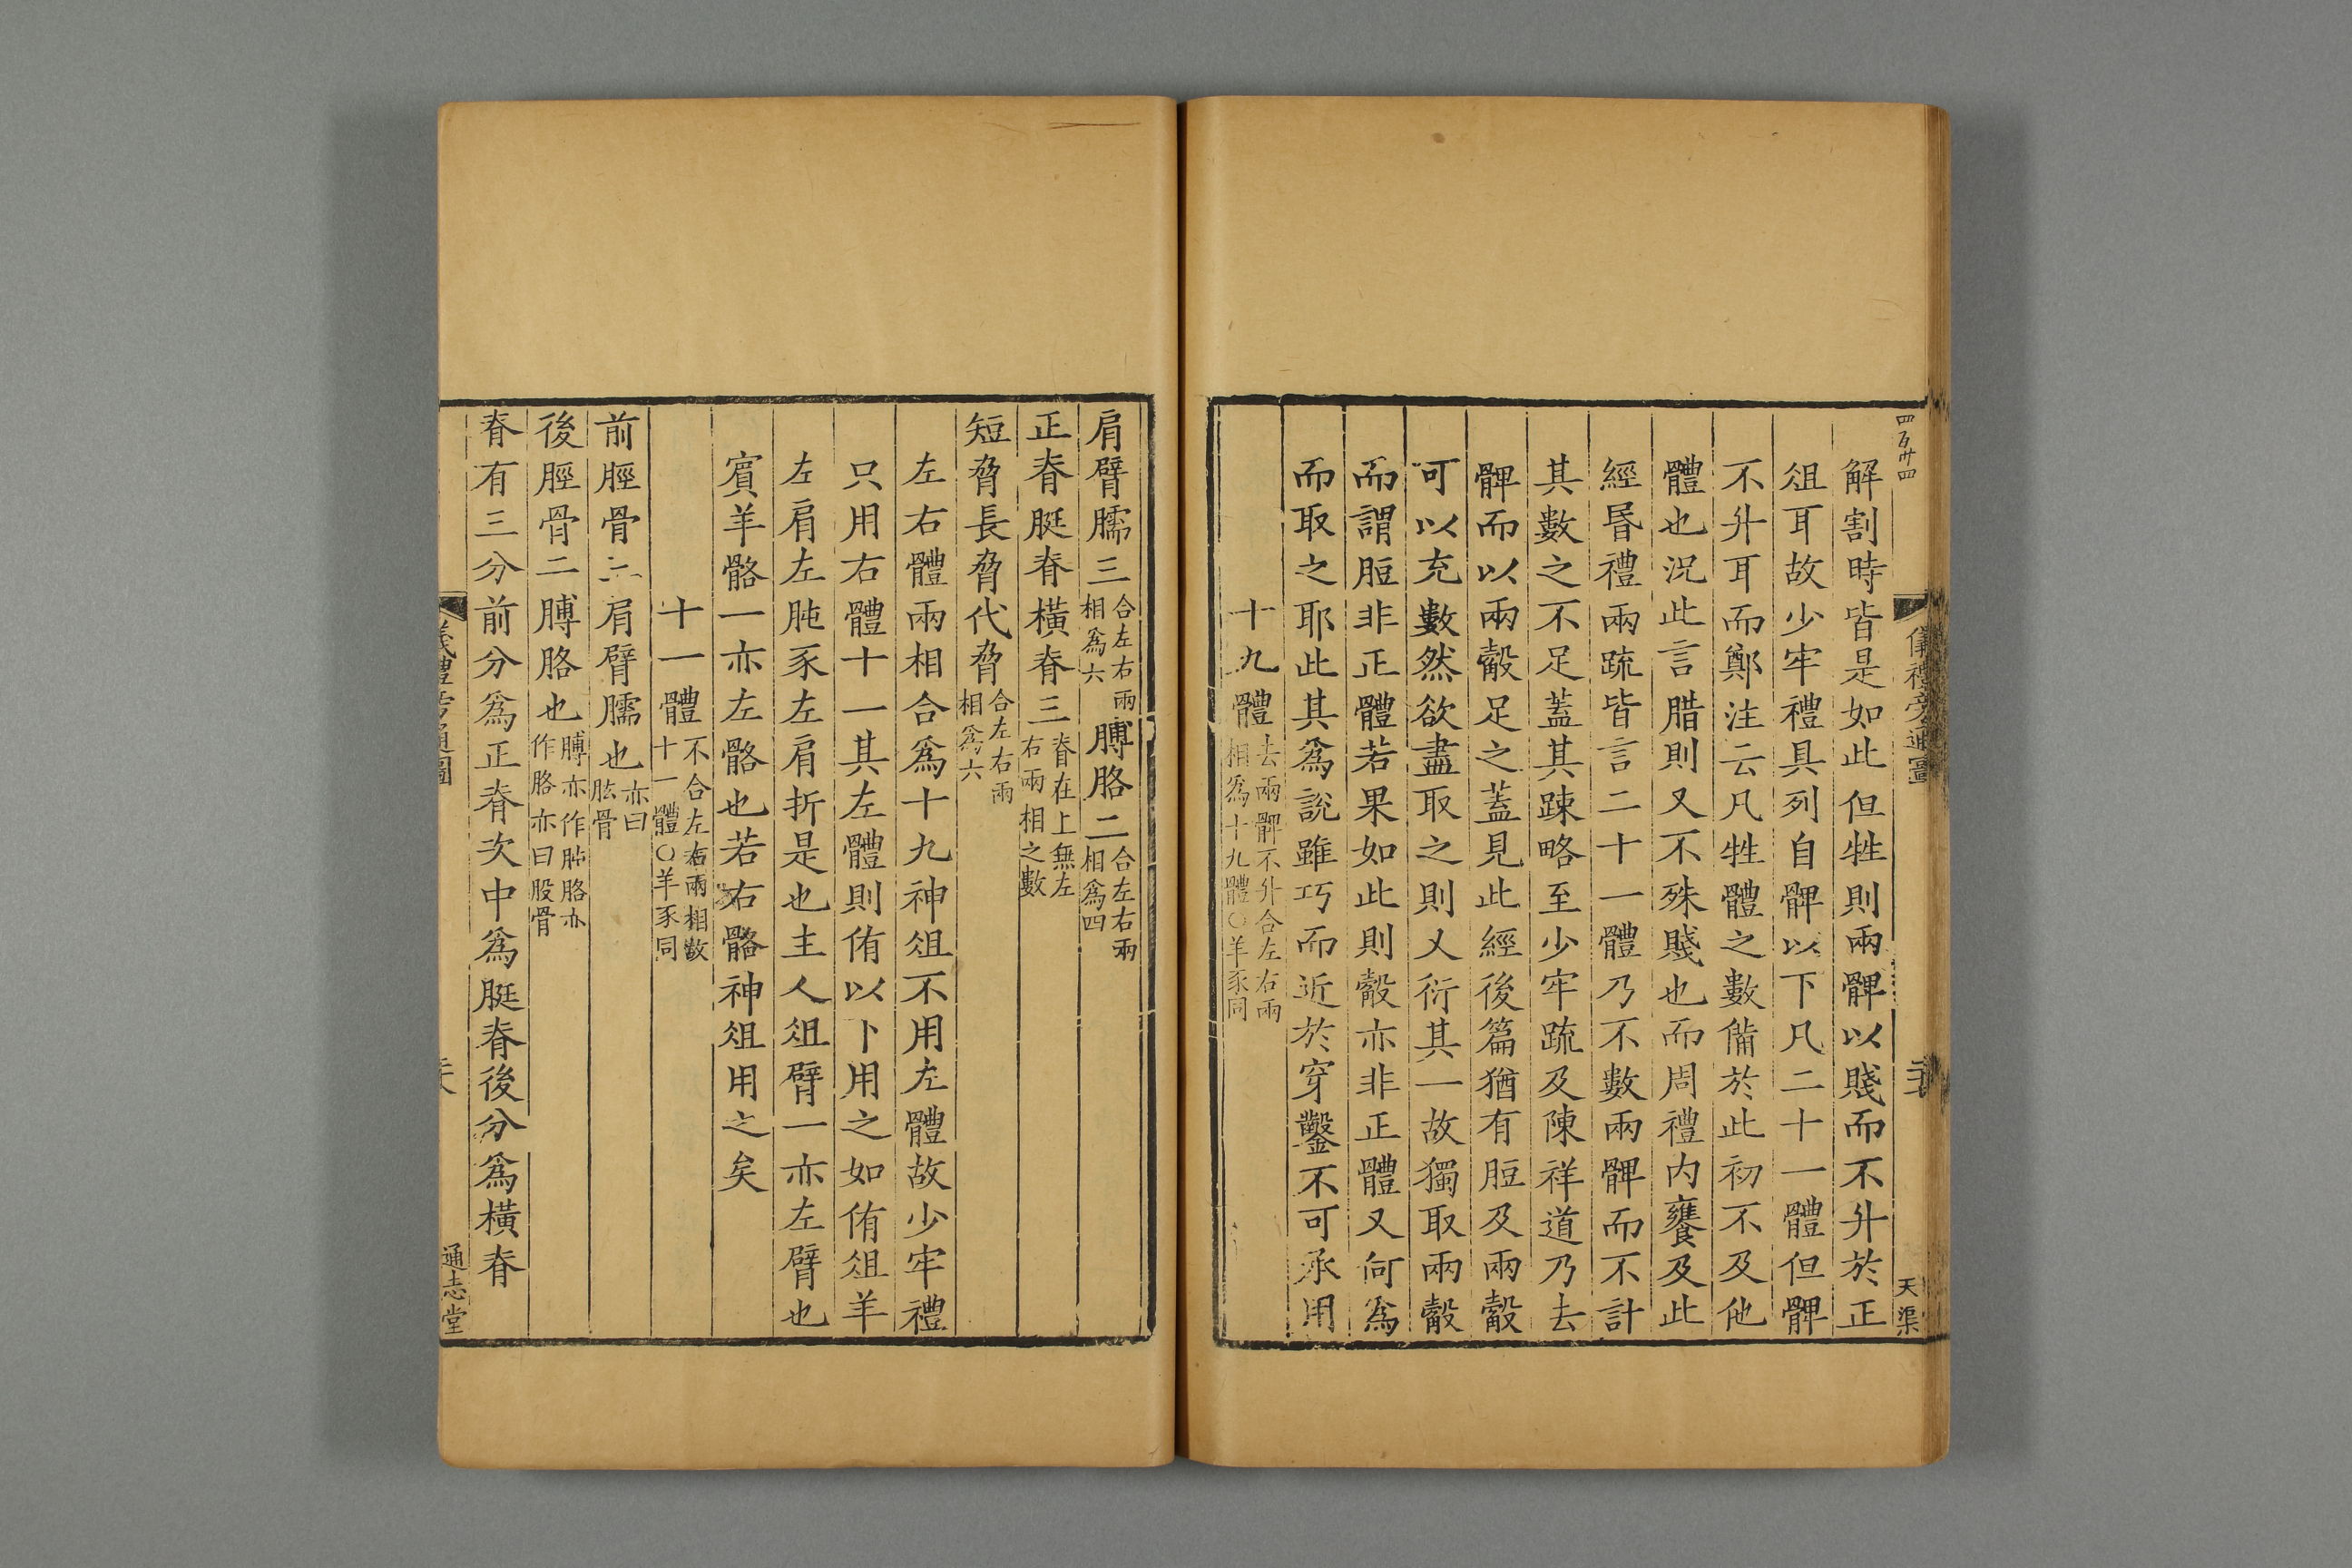 四百卅四
儀禮旁通圖
天渠
解割時皆是如此但牲則兩髀以賤而不升於正
俎耳故少牢禮具列自髀以下凡二十一體但髀
不升耳而鄭注云凡牲體之數備於此初不及他
體也況此言腊則又不殊賤也而周禮内饔及此
經昏禮兩疏皆言二十一體乃不數兩髀而不計
其數之不足蓋其踈略至少牢疏及陳祥道乃去
髀而以兩觳足之蓋見此經後篇猶有脰及兩觳
可以充數然欲盡取之則乂衍其一故獨取兩觳
而謂脰非正體若果如此則觳亦非正體又何爲
而取之耶此其爲說雖巧而近於穿鑿不可承用
十九體去兩髀不升合左右兩
相爲十九體○羊豕同
肩臂臑三合左右兩
相爲六膊胳二合左右兩
相爲四
正脊脡脊橫脊三脊在上無左
右兩相之數
短脅長脅代脅合左右兩
相爲六
左右體兩相合爲十九神俎不用左體故少牢禮
只用右體十一其左體則侑以下用之如侑俎羊
左肩左肫豕左肩折是也主人俎臂一亦左臂也
賓羊骼一亦左骼也若右骼神俎用之矣
十一體不合左右兩相數
十一體○羊豕同
前脛骨三肩臂臑也亦曰
肱骨
後脛骨二膊胳也膊亦作肫胳亦
作胳亦曰股骨
脊有三分前分爲正脊次中爲脡脊後分爲橫脊
儀禮旁通圖
通志堂